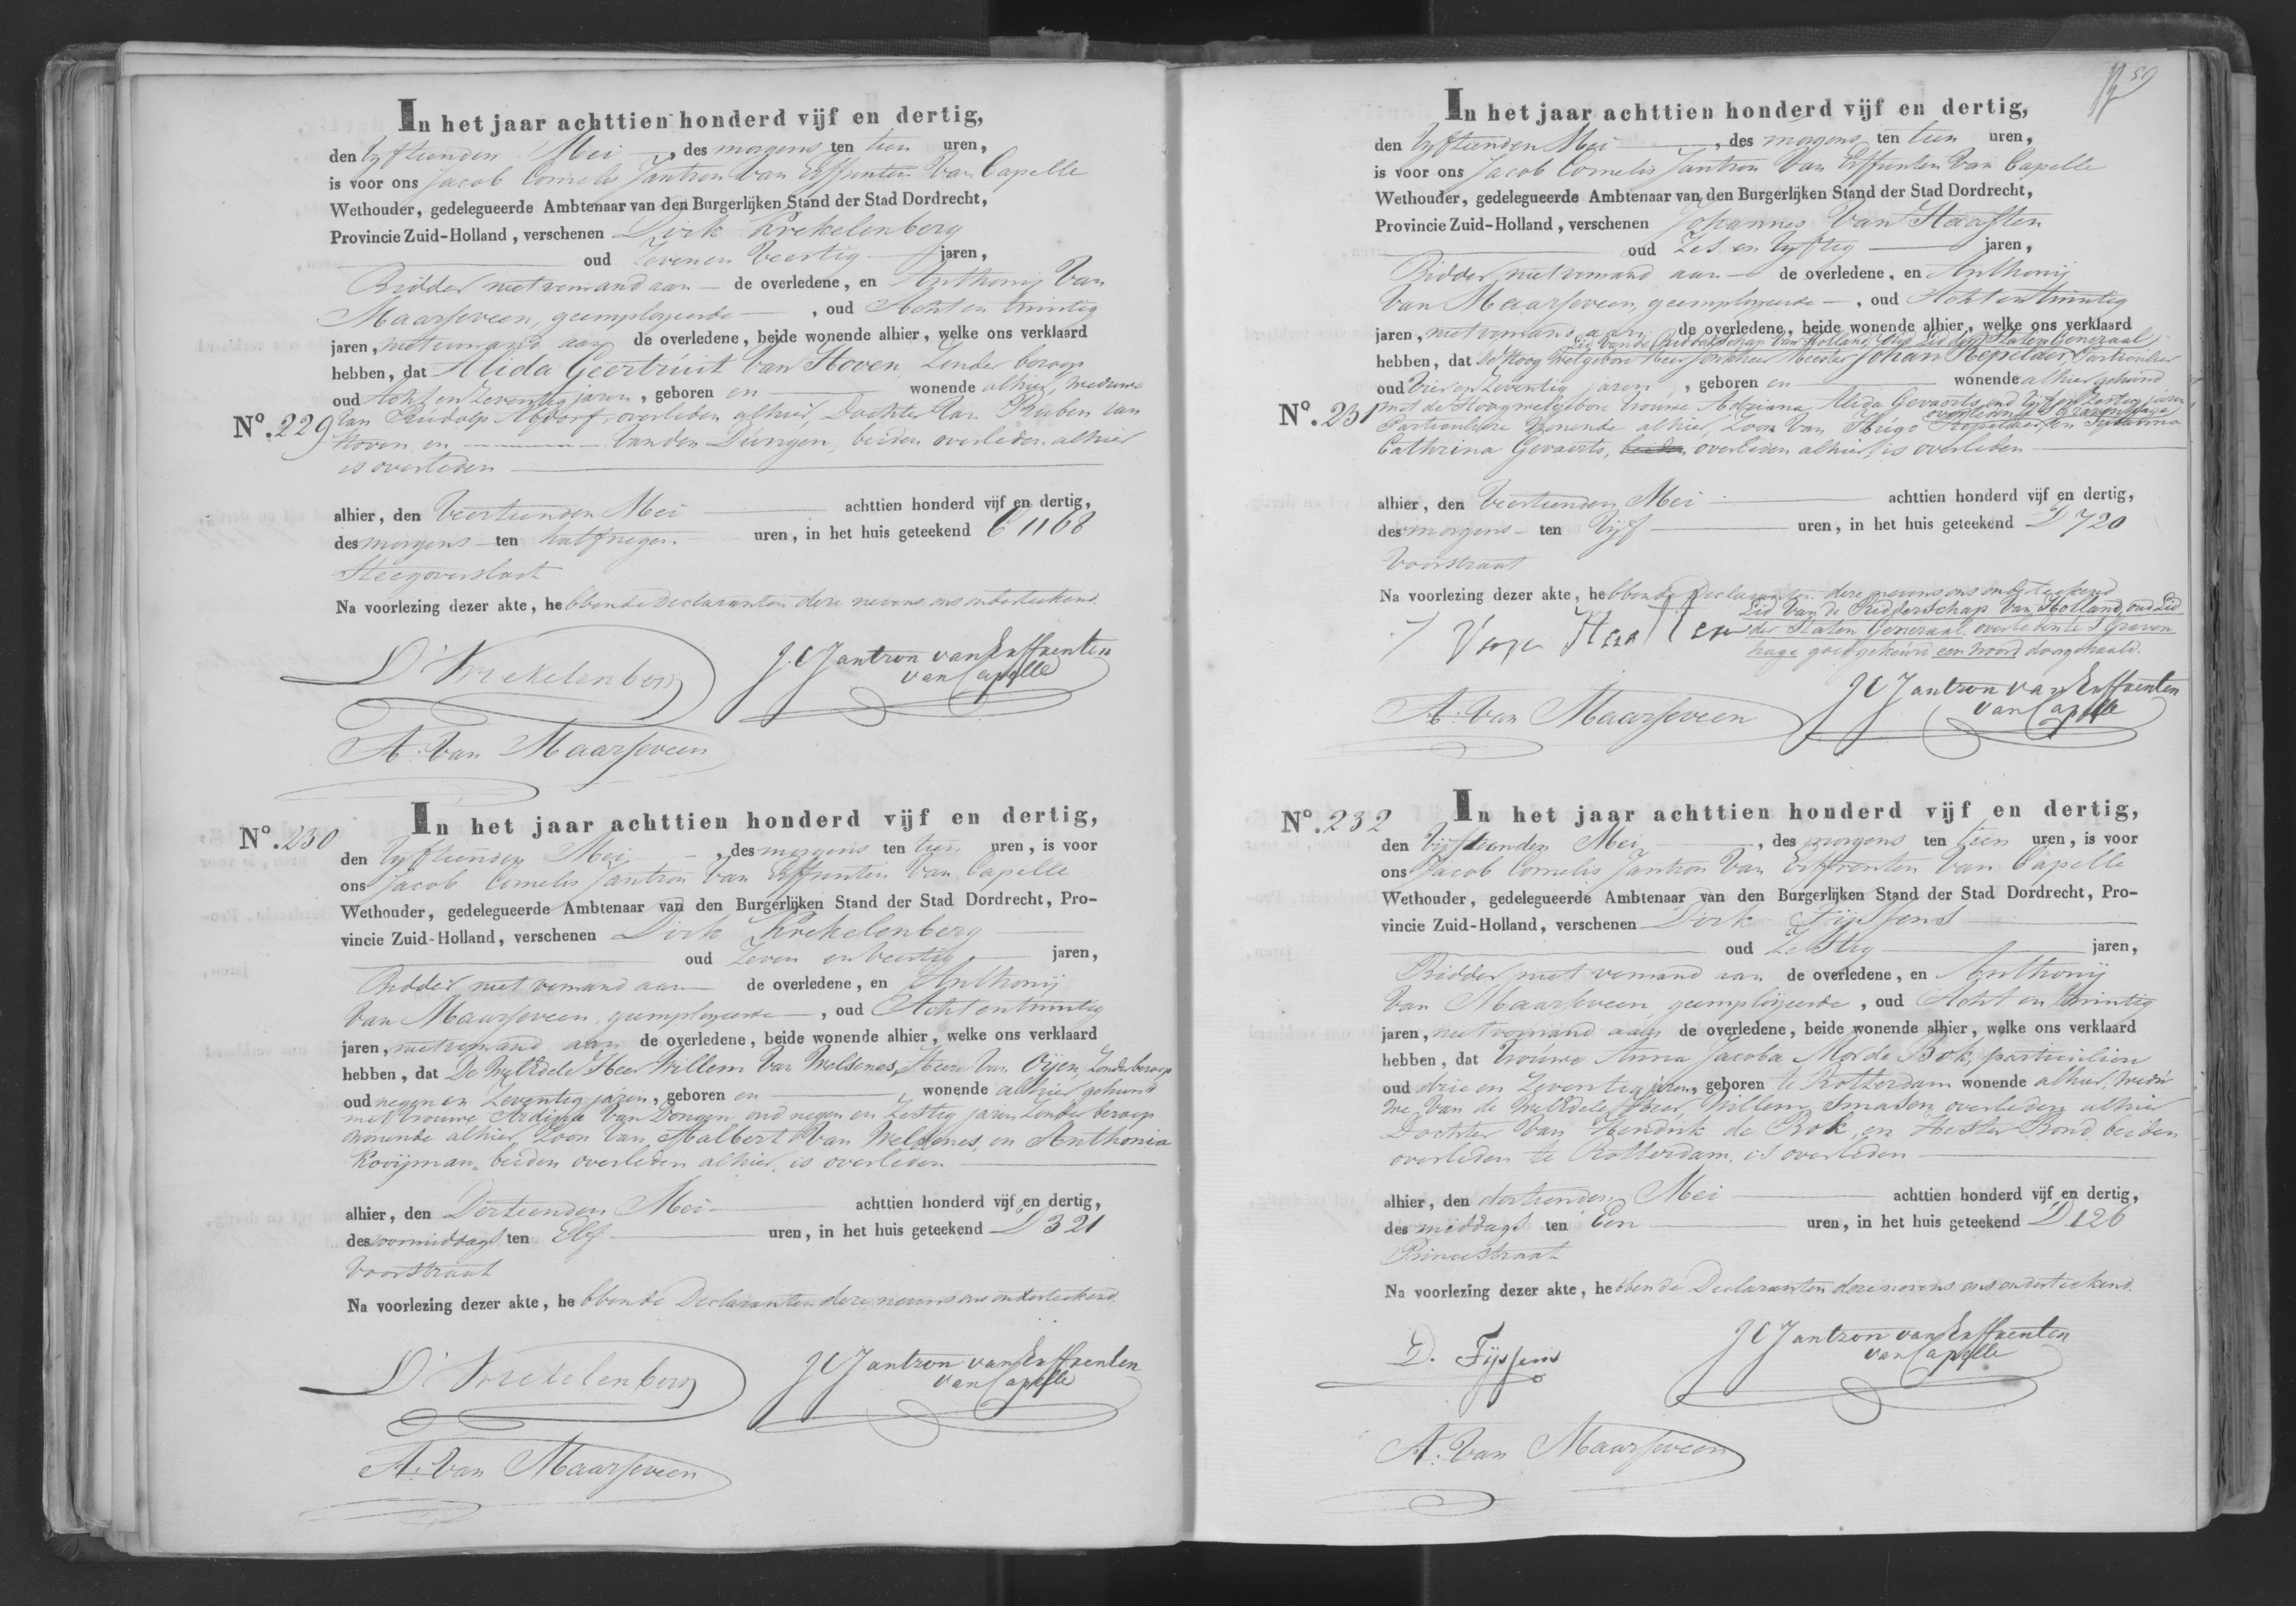 In het jaar achttien honderd vijf en dertig,
den Vyftienden Mei, des morgens ten tien uren,
is voor ons Jacob Cornelis Jantzon Van Erffrenten Van Capelle
Wethouder, gedelegueerde Ambtenaar van den Burgerlijken Stand der Stad Dordrecht,
Provincie Zuid-Holland, verschenen Dirk Krekelenberg
oud Zeven en Veertig jaren,
Bidder niet vermand aan de overledene, en Anthonij Van
Maarseveen, geemployeerde, oud Acht en twintig
jaren, niet vermand aan de overledene, beide wonende alhier, welke ons verklaard
hebben, dat Alida Geertruit Van Hoven, Zonder beroep
oud Acht en Zeventig jaren, geboren en wonende alhier, Weduwe
No. 229 Van Rudolf Abdorf, overleden alhier, Dochter Van Ruben Van
Hoven, en Van den Dungen, beiden overleden alhier
is overleden
alhier, den Veertienden Mei achttien honderd vijf en dertig,
des morgens ten half negen uren, in het huis geteekend C 1168
Steegoversloot
Na voorlezing dezer akte, hebbende Declaranten deze nevens ons onderteekend.
D. Krekelenberg
J. C. Jantzon van Erffrenten
van Capelle
A. Van Maarseveen
No. 230 In het jaar achttien honderd vijf en dertig,
den Vyftienden Mei, des morgens ten tien uren, is voor
ons Jacob Cornelis Jantzon Van Erffrenten Van Capelle
Wethouder, gedelegueerde Ambtenaar van den Burgerlijken Stand der Stad Dordrecht, Pro-
vincie Zuid-Holland, verschenen Dirk Krekelenberg
oud Zeven en Veertig jaren,
Bidder niet vermand aan de overledene, en Anthonij
Van Maarseveen, geemployeerde, oud Acht en twintig
jaren, niet vermand aan de overledene, beide wonende alhier, welke ons verklaard
hebben, dat De WelEdele Heer Willem Van Welsenes, Heere Van Oijen, Zonder beroep
oud negen en Zeventig jaren, geboren en wonende alhier gehuwd
met Vrouwe Ardina Van Dongen, oud negen en Zestig jaren Zonder beroep
wonende alhier, Zoon Van Malbert Van Welsenes, en Anthonia
Kooijman, beiden overleden alhier, is overleden
alhier, den Dertienden Mei achttien honderd vijf en dertig,
des voormiddags ten Elf uren, in het huis geteekend D 321
Voorstraat
Na voorlezing dezer akte, hebbende Declaranten deze nevens ons onderteekend.
D. Krekelenberg
J C Jantzon van Erffrenten
van Capelle
A. Van Maarseveen
59
In het jaar achttien honderd vijf en dertig,
den Vyftienden Mei, des morgens ten tien uren,
is voor ons Jacob Cornelis Jantzon Van Erffrenten Van Capelle
Wethouder, gedelegueerde Ambtenaar van den Burgerlijken Stand der Stad Dordrecht,
Provincie Zuid-Holland, verschenen Johannes Van Haaften
oud Zes en Vyftig jaren,
Bidder, niet vermand aan de overledene, en Anthonij
Van Maarseveen, geemployeerde, oud Acht en twintig
jaren, niet vermand aan de overledene, beide wonende alhier, welke ons verklaard
Lid Van de Ridderschap Van Holland, Oud Lid der Staten Generaal
hebben, dat De Hoog Welgebore Heer Jonkheer Meester Johan Repelaer, Particulier
oud Vier en Zeventig jaren, geboren en wonende alhier gehuwd
No. 231 met de Hoogwelgebore Vrouwe Adriana Alida Gevaerts, oud Vijf en Zestig jaren
overleden te S Gravenhage
Particuliere wonende alhier, Zoon Van Hugo Repelaer, en
Cathrina Gevaerts, beiden overleden alhier, is overleden
alhier, den Veertienden Mei achttien honderd vijf en dertig,
des morgens ten Vijf uren, in het huis geteekend D 720
Voorstraat
Na voorlezing dezer akte, hebbende Declaranten deze nevens ons onderteekend
Lid Van de Ridderschap Van Holland, oud Lid
der Staten Generaal, overleden te S Graven
hage goedgekeurd een woord doorgehaald.
J Van Haaften
A. Van Maarseveen
J C Jantzon van Erffrenten
van Capelle
No. 232 In het jaar achttien honderd vijf en dertig,
den Vijftienden Mei, des morgens ten tien uren, is voor
ons Jacob Cornelis Jantzon Van Erffrenten Van Capelle
Wethouder, gedelegueerde Ambtenaar van den Burgerlijken Stand der Stad Dordrecht, Pro-
vincie Zuid-Holland, verschenen Dirk Fijssens
oud Zestig jaren,
Bidder, niet vermand aan de overledene, en Anthonij
Van Maarseveen, geemployeerde, oud Acht en twintig
jaren, niet vermand aan de overledene, beide wonende alhier, welke ons verklaard
hebben, dat Vrouwe Anna Jacoba Mor de Bok, particuliere
oud drie en Zeventig jaren, geboren te Rotterdam wonende alhier, Wedu
we Van de WelEdele Heer, Willem Smasen overleden alhier
Dochter Van Hendrik de Bok, en Hester Bond, beiden
overleden te Rotterdam, is overleden
alhier, den dertienden Mei achttien honderd vijf en dertig,
des middags ten Een uren, in het huis geteekend D 126
Princestraat
Na voorlezing dezer akte, hebbende Declaranten deze nevens ons onderteekend.
D. Fijssens
J C Jantzon van Erffrenten
van Capelle
A. Van Maarseveen